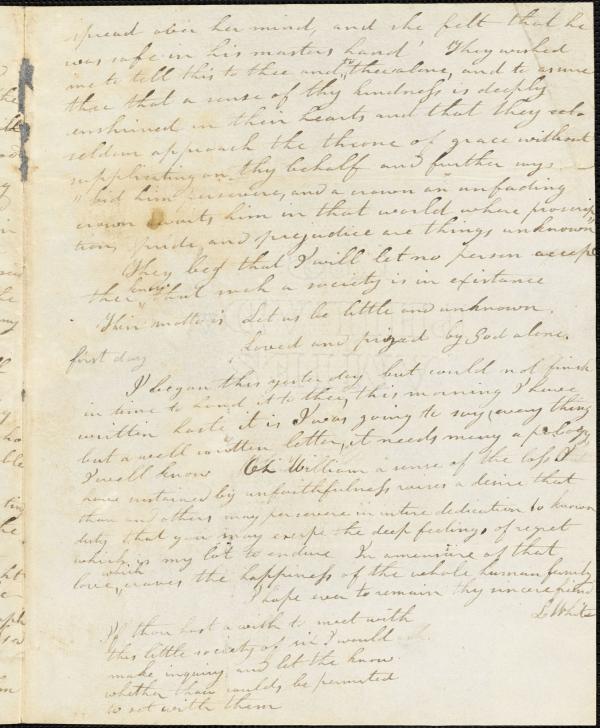 spread over her mind, and she felt that he
was safe in his masters hand' They wished
me to tell this to thee and thee alone, and to assure
thee that a sense of thy kindness is deeply
enshrined in their hearts and that they sel-
seldom approach the throne of grace without
supplicating on thy behalf and further says
"bid him persevere, and a crown an unfading
crown awaits him in that world where proscrip
tion, pride, and prejudice are things unknown"
They beg that I will let no person except
thee know that such a society is in existance
Their motto is Let us be little and unknown,
Loved and prized by God alone.
first day
I began this yesterday but could not finish
in time to hand it to thee, this morning I have
written haste it is I was going to say, every thing
but a well written letter, it needs many apology,
I well know Oh William a sense of the loss I
have sustained by unfaithfulness raises a desire that
thou and others may persevere in intire dedication to known
duty that you may escape the deep feelings of regret
which is my lot to endure In a measure of that
love which craves the happiness of the whole human family
I hope ever to remain thy sincere friend
L White
If thou hast a wish to meet with
this little society of six I would
make inquiry and let the know
whether thou coulds be permited
to set with them